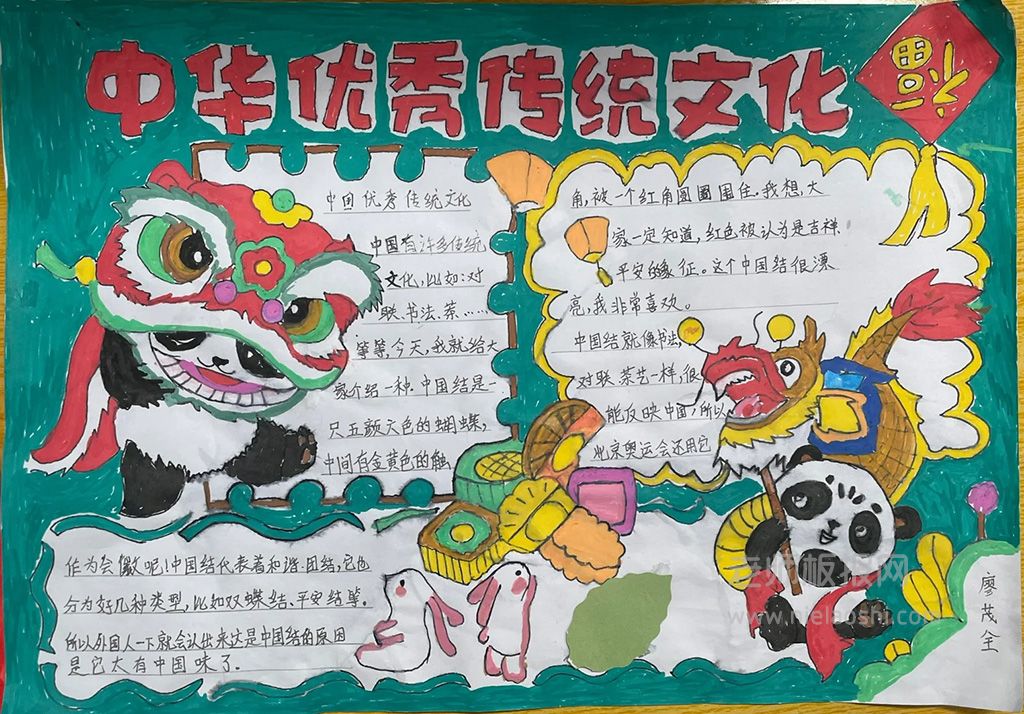 中华优秀传统文化
福
中国优秀传统文化
中国有许多传统
文化,比如:对
联、书法、茶……
等等,今天,我就给大
家介绍一种.中国结是一
只五颜六色的蝴蝶,
中间有金黄色的触
角,被一个红角圆圈围住.我想,大
家一定知道,红色被认为是吉祥
平安的象征。这个中国结很漂
亮,我非常喜欢。
中国结就像书法,
对联.茶艺一样,很
能反映中国,所以
北京奥运会还用它
作为会徽呢!中国结代表着和谐.团结,它也
分为好几种类型,比如双蝶结、平安结等。
所以外国人一下就会认出来这是中国结的原因
是它太有中国味了。
廖茂全
老师板报网
www.nielaoshi.com